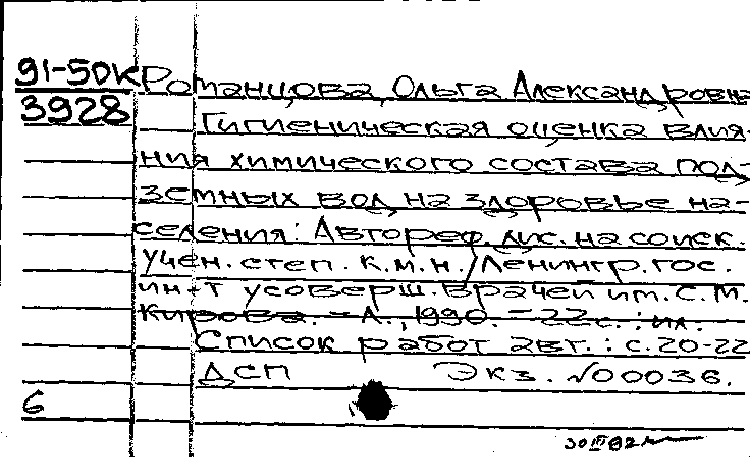 91-50К Романцова, Ольга Александровна
3928 Гигиеническая оценка влия-
ния химического состава под-
земных вод на здоровье на-
селения: Автореф. дис. на соиск.
учен. степ. к.м.н. / Ленингр. гос.
ин-т усоверш. врачей им. С.М.
Кирова. – Л., 1990. – 22 с. : ил.
Список работ авт.: с. 20-22
ДСП Экз. №00036.
6